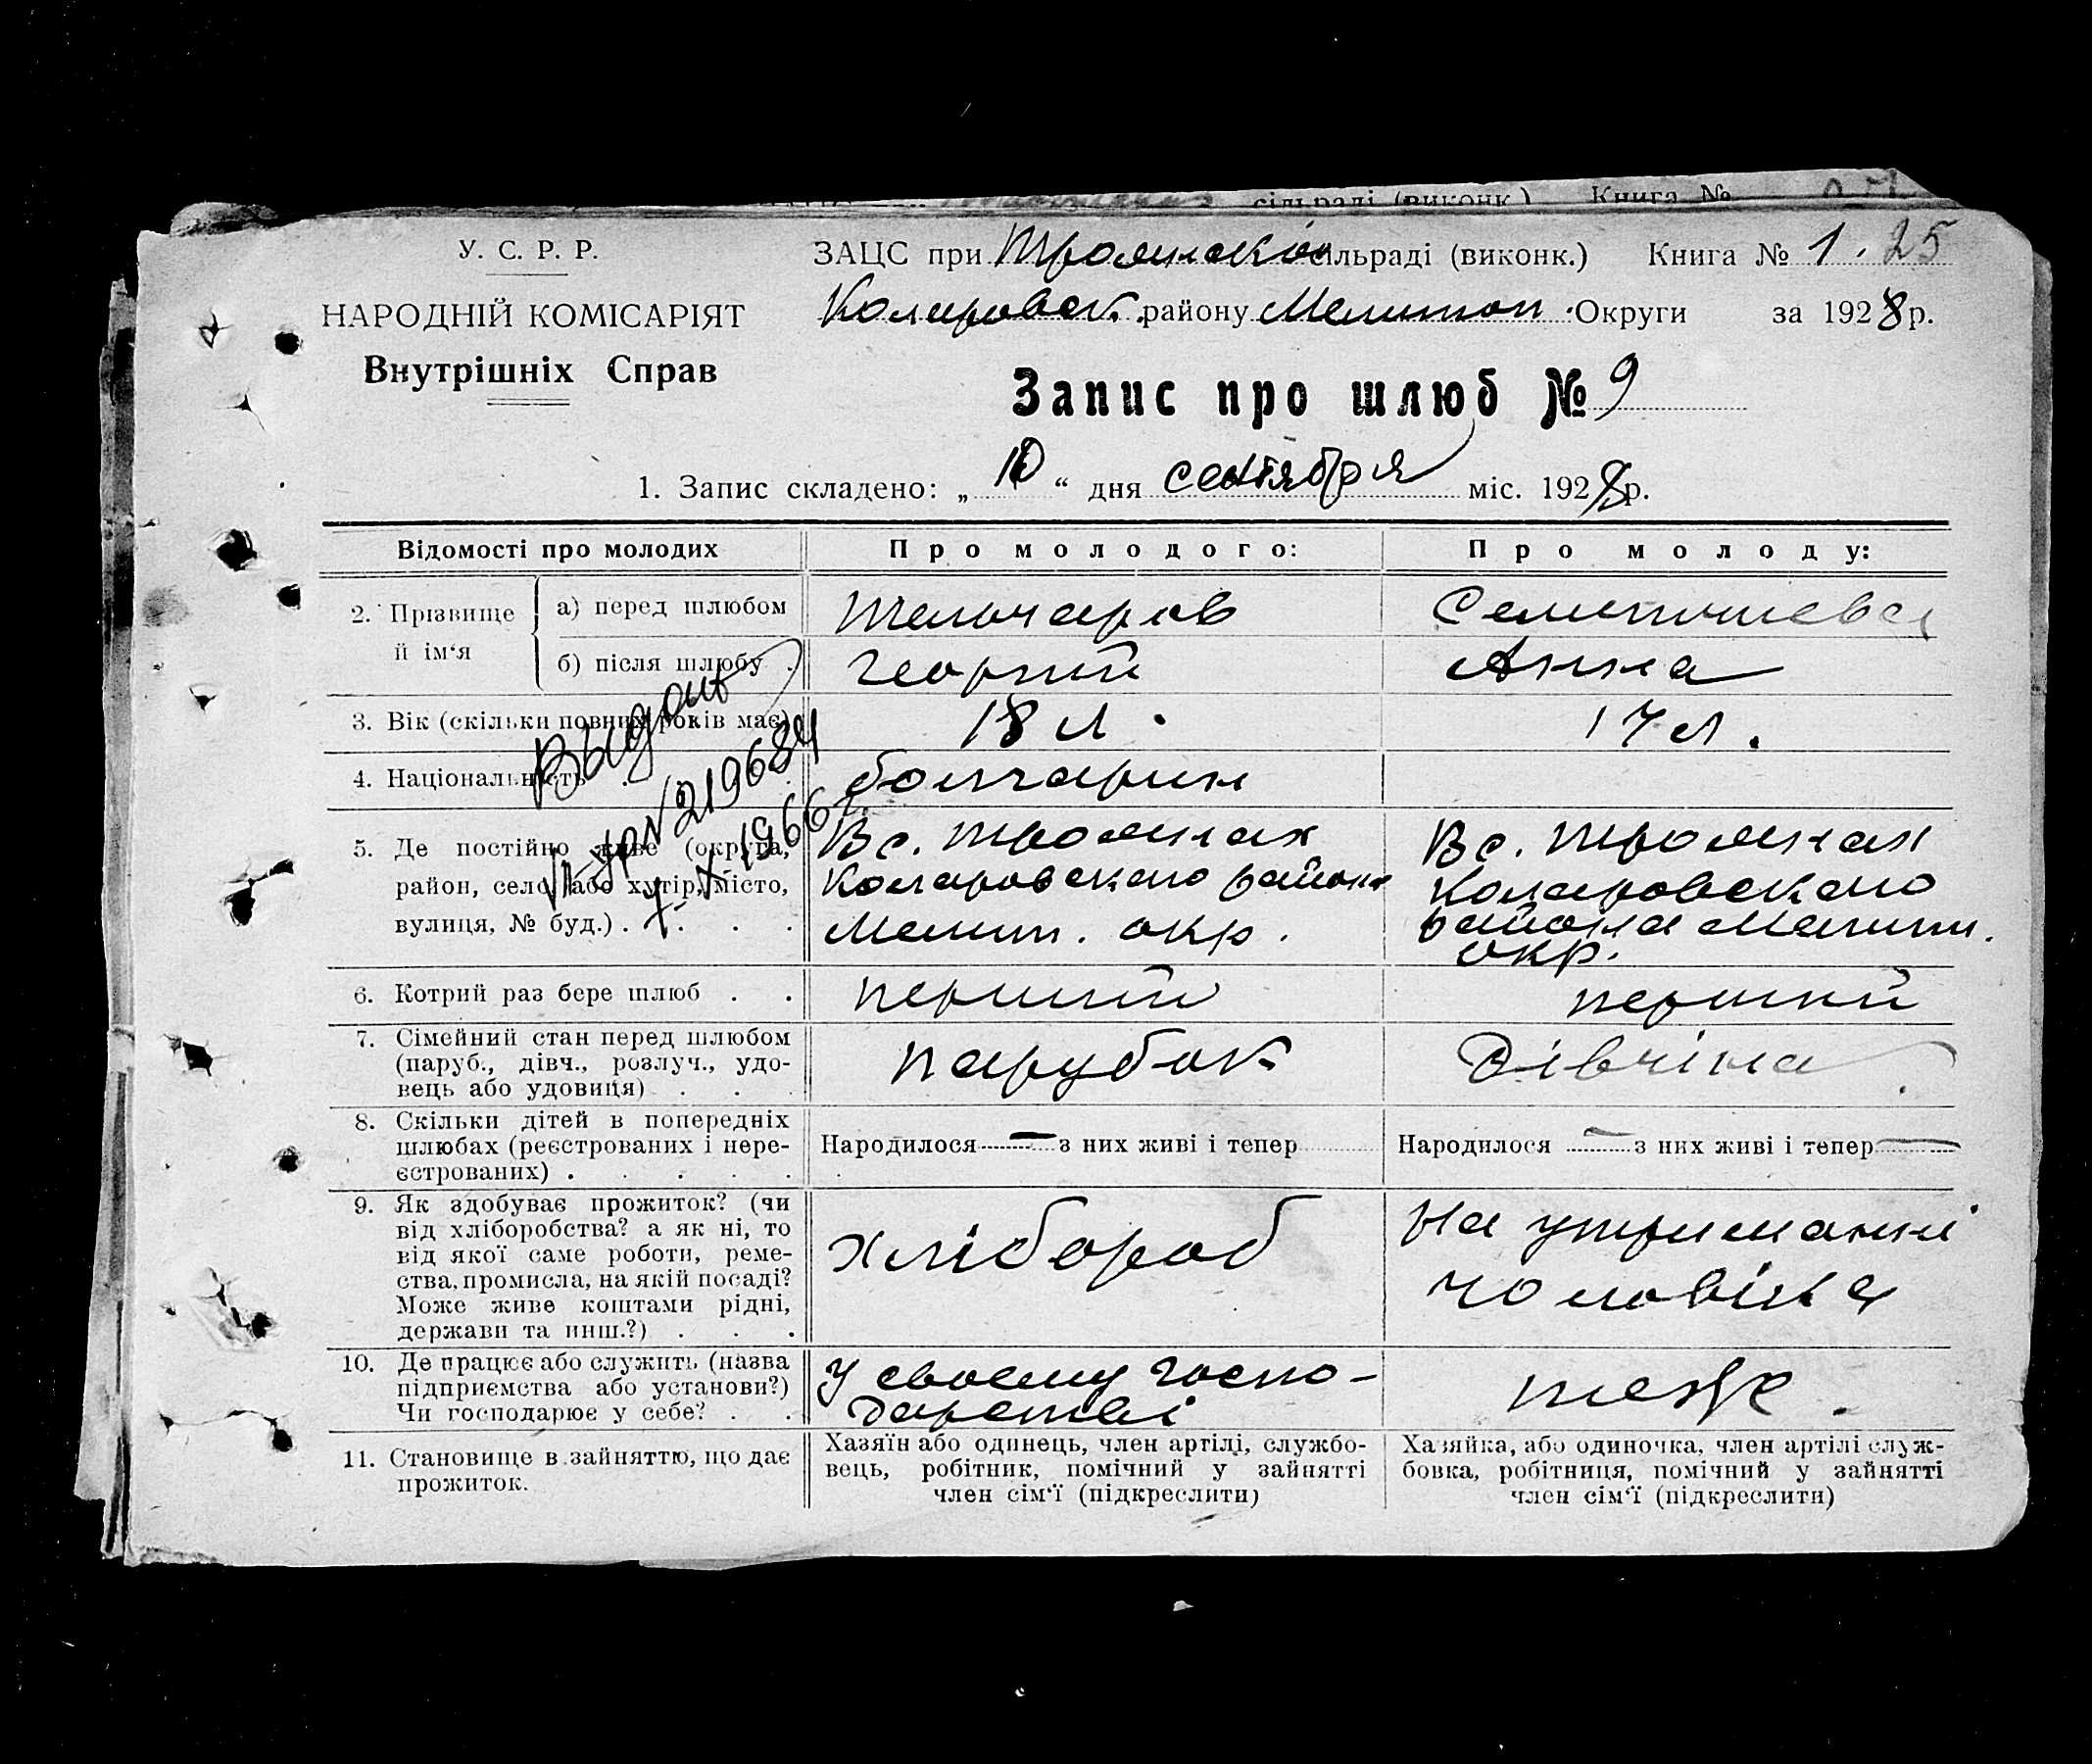 сільраді (виконк.) Книга №
У. С. Р. Р.
НАРОДНІЙ КОМІСАРІЯТ
Внутрішніх Справ
ЗАЦС при Троянскій сільраді (виконк.) Книга № 1. 25
Коларовск. району Мелитоп. Округи за 1928 р.
Запис про шлюб № 9
1. Запис складено: „ 10 “ дня сентября міс. 1928 р.
Відомості про молодих
Про молодого:
Про молоду:
2. Прізвище й ім‘я
а) перед шлюбом
Тельчаров
б) після шлюбу .
Георгий
Анна
3. Вік (скільки повних років має)
18 л.
17 л.
4. Національність
болгарин
5. Де постійно живе (округа,
район, село, або хутір, місто,
вулиця, № буд.) . . . .
В с. Троянах
Коларовского района
Мелит. окр.
В с. Троянах
Коларовского
района Мелит.
окр.
Выдано
№ 219684
X-1966 г.
6. Котрий раз бере шлюб . .
перший
перший
7. Сімейний стан перед шлюбом
(паруб., дівч., розлуч., удо-
вець або удовиця) . . .
парубок
Дівчіна
8. Скільки дітей в попередніх
шлюбах (реєстрованих і нере-
єстрованих) . . . . .
Народилося — з них живі і тепер
Народилося — з них живі і тепер —
9. Як здобуває прожиток? (чи
від хліборобства? а як ні, то
від якої саме роботи, реме-
ства, промисла, на якій посаді?
Може живе коштами рідні,
держави та инш.?) . . .
хлібороб
На утриманні
чоловіка
10. Де працює або служить (назва
підприємства або установи?)
Чи господарює у себе? . .
У своєму госпо-
дарстві
теже.
11. Становище в зайняттю, що дає
прожиток.
Хазяїн або одинець, член артілі, службо-
вець, робітник, помічний у зайнятті
член сім‘ї (підкреслити)
Хазяйка, або одиночка, член артілі служ-
бовка, робітниця, помічний у зайнятті
член сім‘ї (підкреслити)